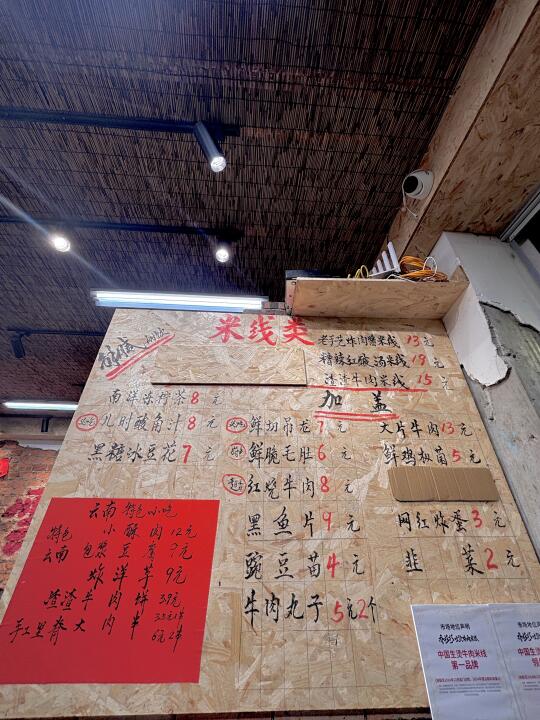 米线类
老于光炸肉酱米线 13元
糟辣红酸汤米线 19元
渣渣牛肉米线 15元
加盖
南洋冻柠茶 8元
儿时酸角汁 8元
黑糖冰豆花 7元
鲜切吊龙 7元
鲜脆毛肚 6元
红烧牛肉 8元
黑鱼片 9元
豌豆苗 4元
牛肉丸子 5元2个
大片牛肉 13元
鲜鸡枞菌 5元
网红炸蛋 3元
韭菜 2元
云南特色小吃
特色小酥肉 12元
云南包浆豆腐 9元
炸洋芋 9元
渣渣牛肉饼
手工里脊大肉串
6元1串
市场地位声明
中国生烫牛肉米线
第一品牌
市场地位声明